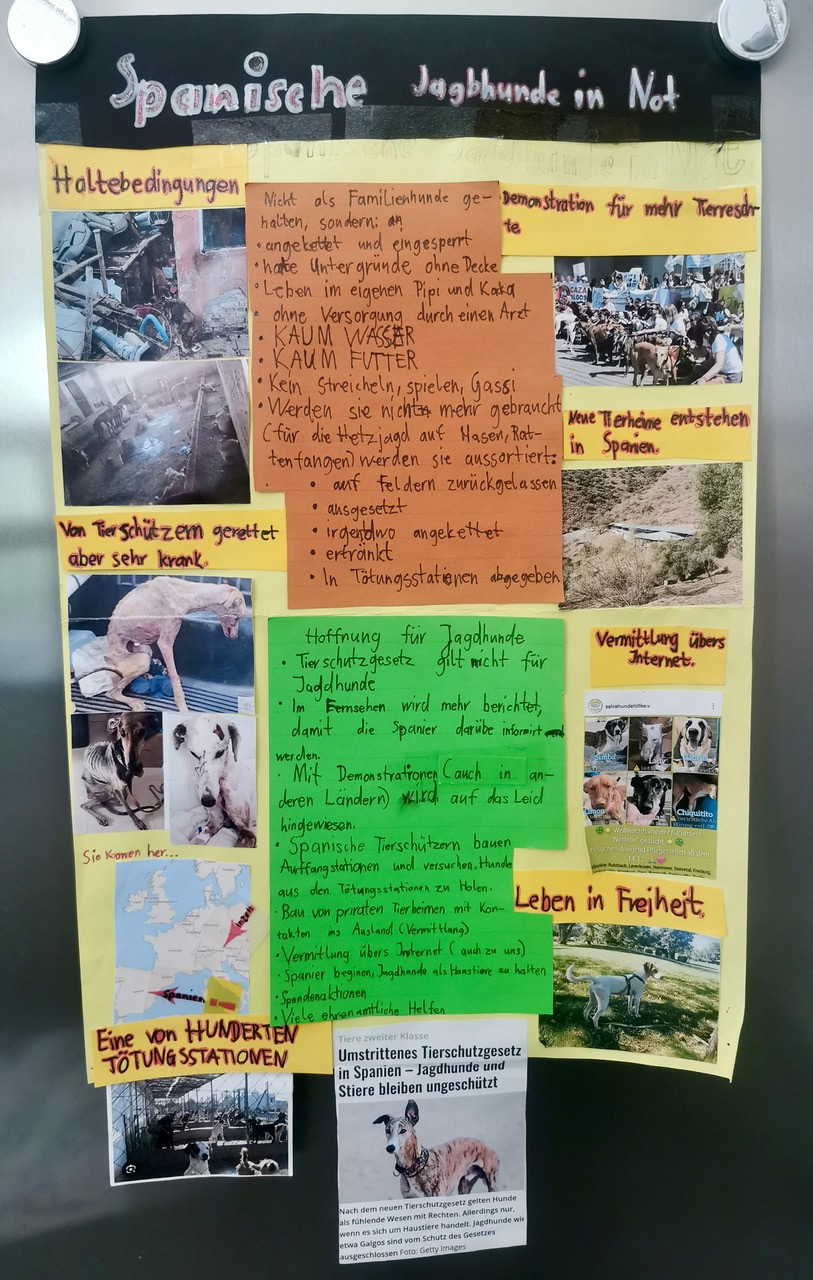 Spanische Jagbhunde in Not
Haltebedingungen
Nicht als Familienhunde ge-
halten, sondern: an
• angekettet und eingesperrt
• harte Untergründe ohne Decke
• Leben im eigenen Pipi und Kaka
ohne Versorgung durch einen Arzt
• KAUM WASSER
• KAUM FUTTER
• Kein Streicheln, spielen, Gassi
• Werden sie nicht mehr gebraucht
(für die Hetzjagd auf Hasen, Rat-
tenfangen) werden sie aussortiert:
• auf Feldern zurückgelassen
• ausgesetzt
• irgendwo angekettet
• ertränkt
• In Tötungsstationen abgegeben
Demonstration für mehr Tierresch-
te
CAZA
GALGOS
Neue Tierheime entstehen
in Spanien.
Von Tierschützern gerettet
aber sehr krank.
Hoffnung für Jagdhunde
• Tierschutzgesetz gilt nicht für
Jagdhunde
• Im Fernsehen wird mehr berichtet,
damit die Spanier darübe informirt
werden.
• Mit Demonstrationen (auch in an-
deren Ländern) wird auf das Leid
hingewiesen.
• Spanische Tierschützern bauen
Auffangstationen und versuchen, Hunde
aus den Tötungsstationen zu Holen.
• Bau von privaten Tierheimen mit Kon-
takten ins Ausland (Vermittlang)
• Vermitlung übers Internet (auch zu uns)
• Spanier beginen, Jagdhunde als Haustiere zu halten
• Spendenaktionen
• Viele ehrenamtliche Helfen
Vermittlung übers
Internet.
salvahundehilfe.v
Simba
Limon
Chiquitito
Weihnachtswunder für unsere
Notfelle gesucht
14.12.
Leben in Freiheit.
Sie Komen her...
Spanien
Eine von HUNDERTEN
TÖTUNGSSTATIONEN
Tiere zweiter Klasse
Umstrittenes Tierschutzgesetz
in Spanien – Jagdhunde und
Stiere bleiben ungeschützt
Nach dem neuen Tierschutzgesetz gelten Hunde
als fühlende Wesen mit Rechten. Allerdings nur,
wenn es sich um Haustiere handelt. Jagdhunde wie
etwa Galgos sind vom Schutz des Gesetzes
ausgeschlossen Foto: Getty Images